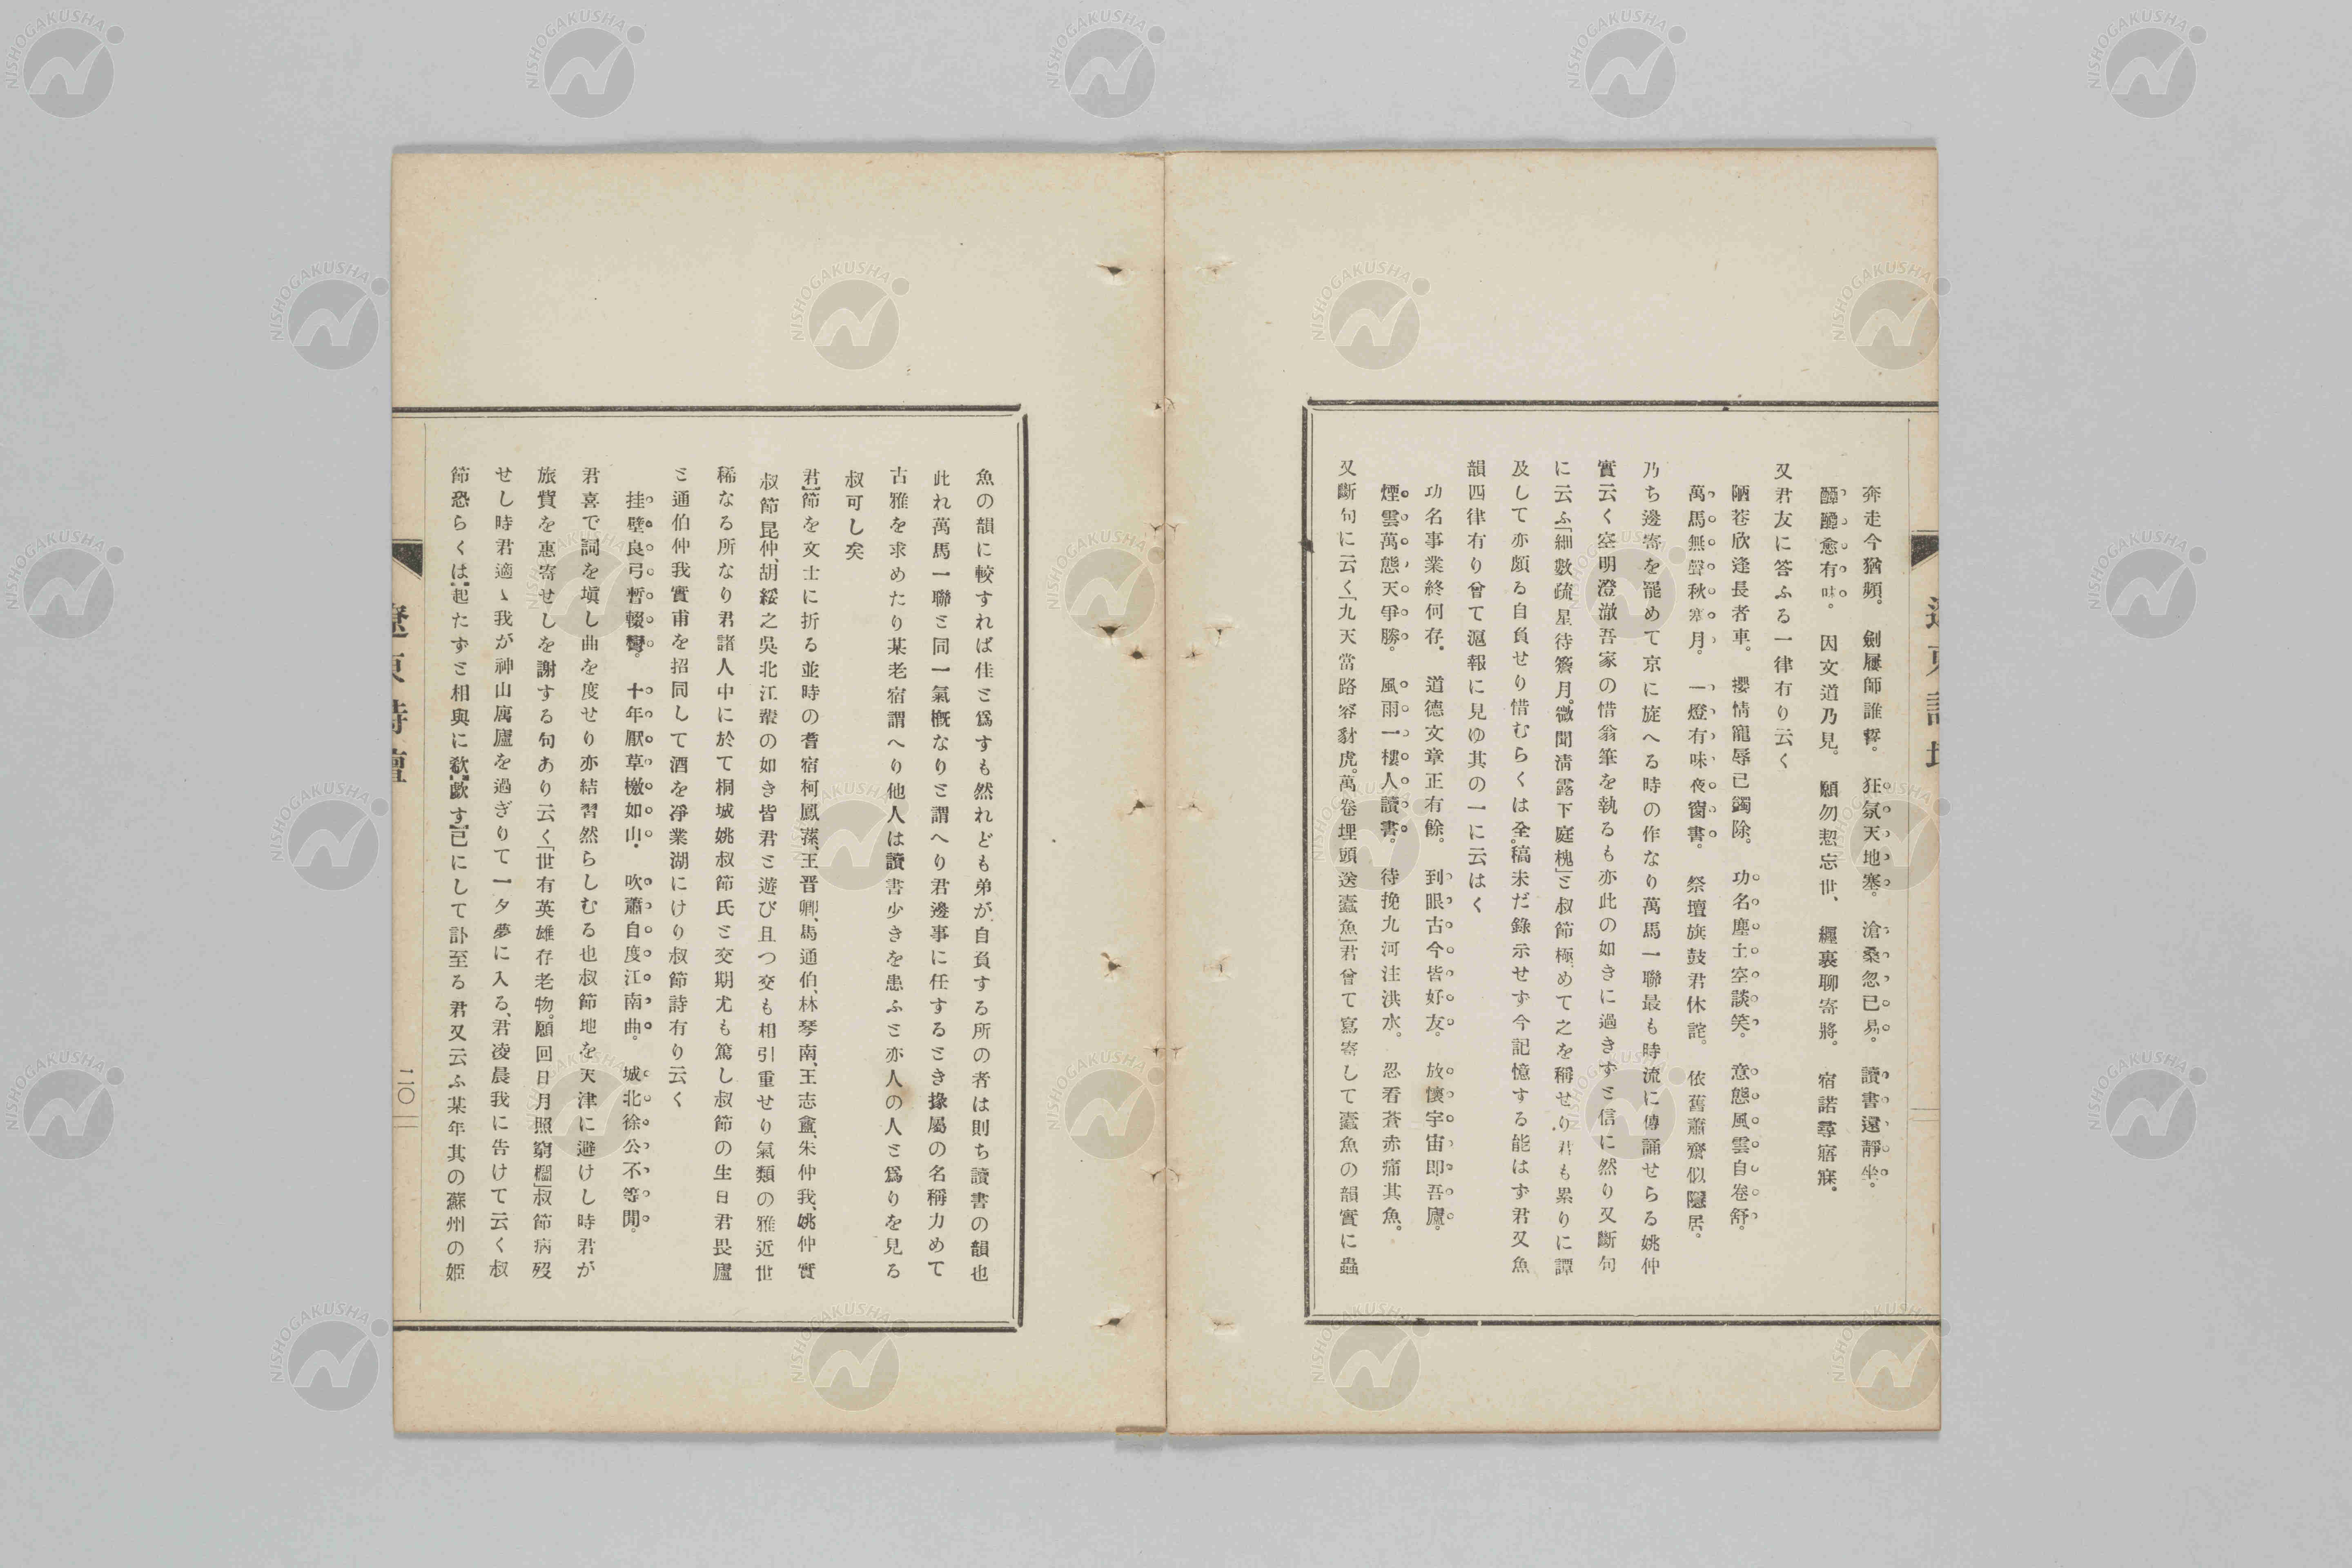 奔走今猶頻。劍屨師誰詧。狂氛天地塞。滄桑忽已易。讀書還靜坐。
醰醰愈有味。因文道乃見。願勿恝忘世、纒裏聊寄將。宿諾尋寤寐。
又君友に答ふる一律有り云く
陋巷欣逢長者車。攖情寵辱已蠲除。功名塵土空談笑。意態風雲自卷舒。
萬馬無聲秋塞月。一燈有味夜窗書。祭壇旗鼓君休詫。依舊蕭齋似隱居。
乃ち邊寄を罷めて京に旋へる時の作なり萬馬一聯最も時流に傳誦せらる姚仲
實云く空明澄澈吾家の惜翁筆を執るも亦此の如きに過きずと信に然り又斷句
に云ふ「細數疏星待簷月。微聞淸露下庭槐」と叔節極めて之を稱せり君も累りに譚
及して亦頗る自負せり惜むらくは全稿未だ錄示せず今記憶する能はず君又魚
韻四律有り曾て滬報に見ゆ其の一に云はく
功名事業終何存。道德文章正有餘。到眼古今皆好友。放懷宇宙即吾廬。
煙雲萬態天爭勝。風雨一樓人讀書。待挽九河注洪水。忍看蒼赤痛其魚。
又斷句に云く「九天當路容豺虎。萬卷埋頭送蠹魚」君曾て寫寄して蠹魚の韻實に蟲
遼東詩壇
魚の韻に較すれば佳と爲すも然れども弟が自負する所の者は則ち讀書の韻也
此れ萬馬一聯と同一氣槪なりと謂へり君邊事に任するとき掾屬の名稱力めて
古雅を求めたり某老宿謂へり他人は讀書少きを患ふと亦人の人と爲りを見る
叔可し矣
君]節を文士に折る並時の耆宿柯鳳蓀、王晋卿、馬通伯、林琴南、王志盦、朱仲我、姚仲實
叔節昆仲、胡綏之吳北江輩の如き皆君と遊び且つ交も相引重せり氣類の雅近世
稀なる所なり君諸人中に於て桐城姚叔節氏と交期尤も篤し叔節の生日君畏廬
と通伯仲我實甫を招同して酒を凈業湖にけり叔節詩有り云く
挂壁良弓暫輟彎。十年厭草檄如山。吹蕭自度江南曲。城北徐公不等閒。
君喜で詞を塡し曲を度せり亦結習然らしむる也叔節地を天津に避けし時君が
旅費を惠寄せしを謝する句あり云く「世有英雄存老物。願回日月照窮櫩」叔節病歿
せし時君適〻我が神山寓廬を過ぎりて一夕夢に入る、君淩晨我に告けて云く叔
節恐らくは[起たずと相與に欷[歔す]已にして訃至る君又云ふ某年其の蘇州の姬
遼東詩壇
二〇